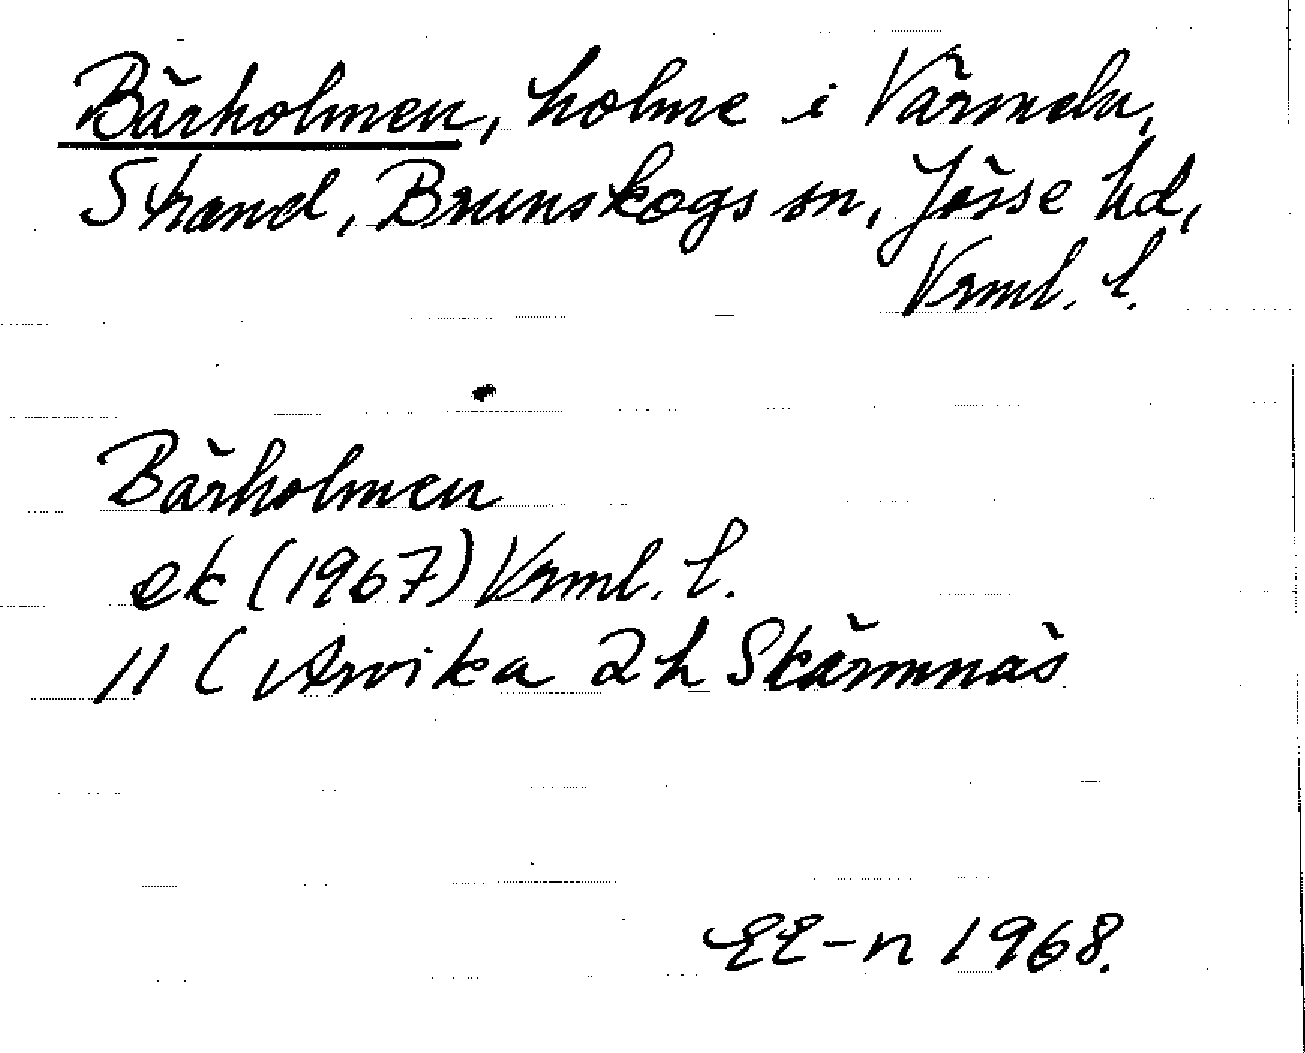 Bärholmen, holme i Värmeln,
Strand, Brunskogs sn, Jösse hd,
Vrml. l.
Bärholmen
ek (1967) Vrml. l.
11 C Arvika 2h Skärmnäs
EE-n 1968.